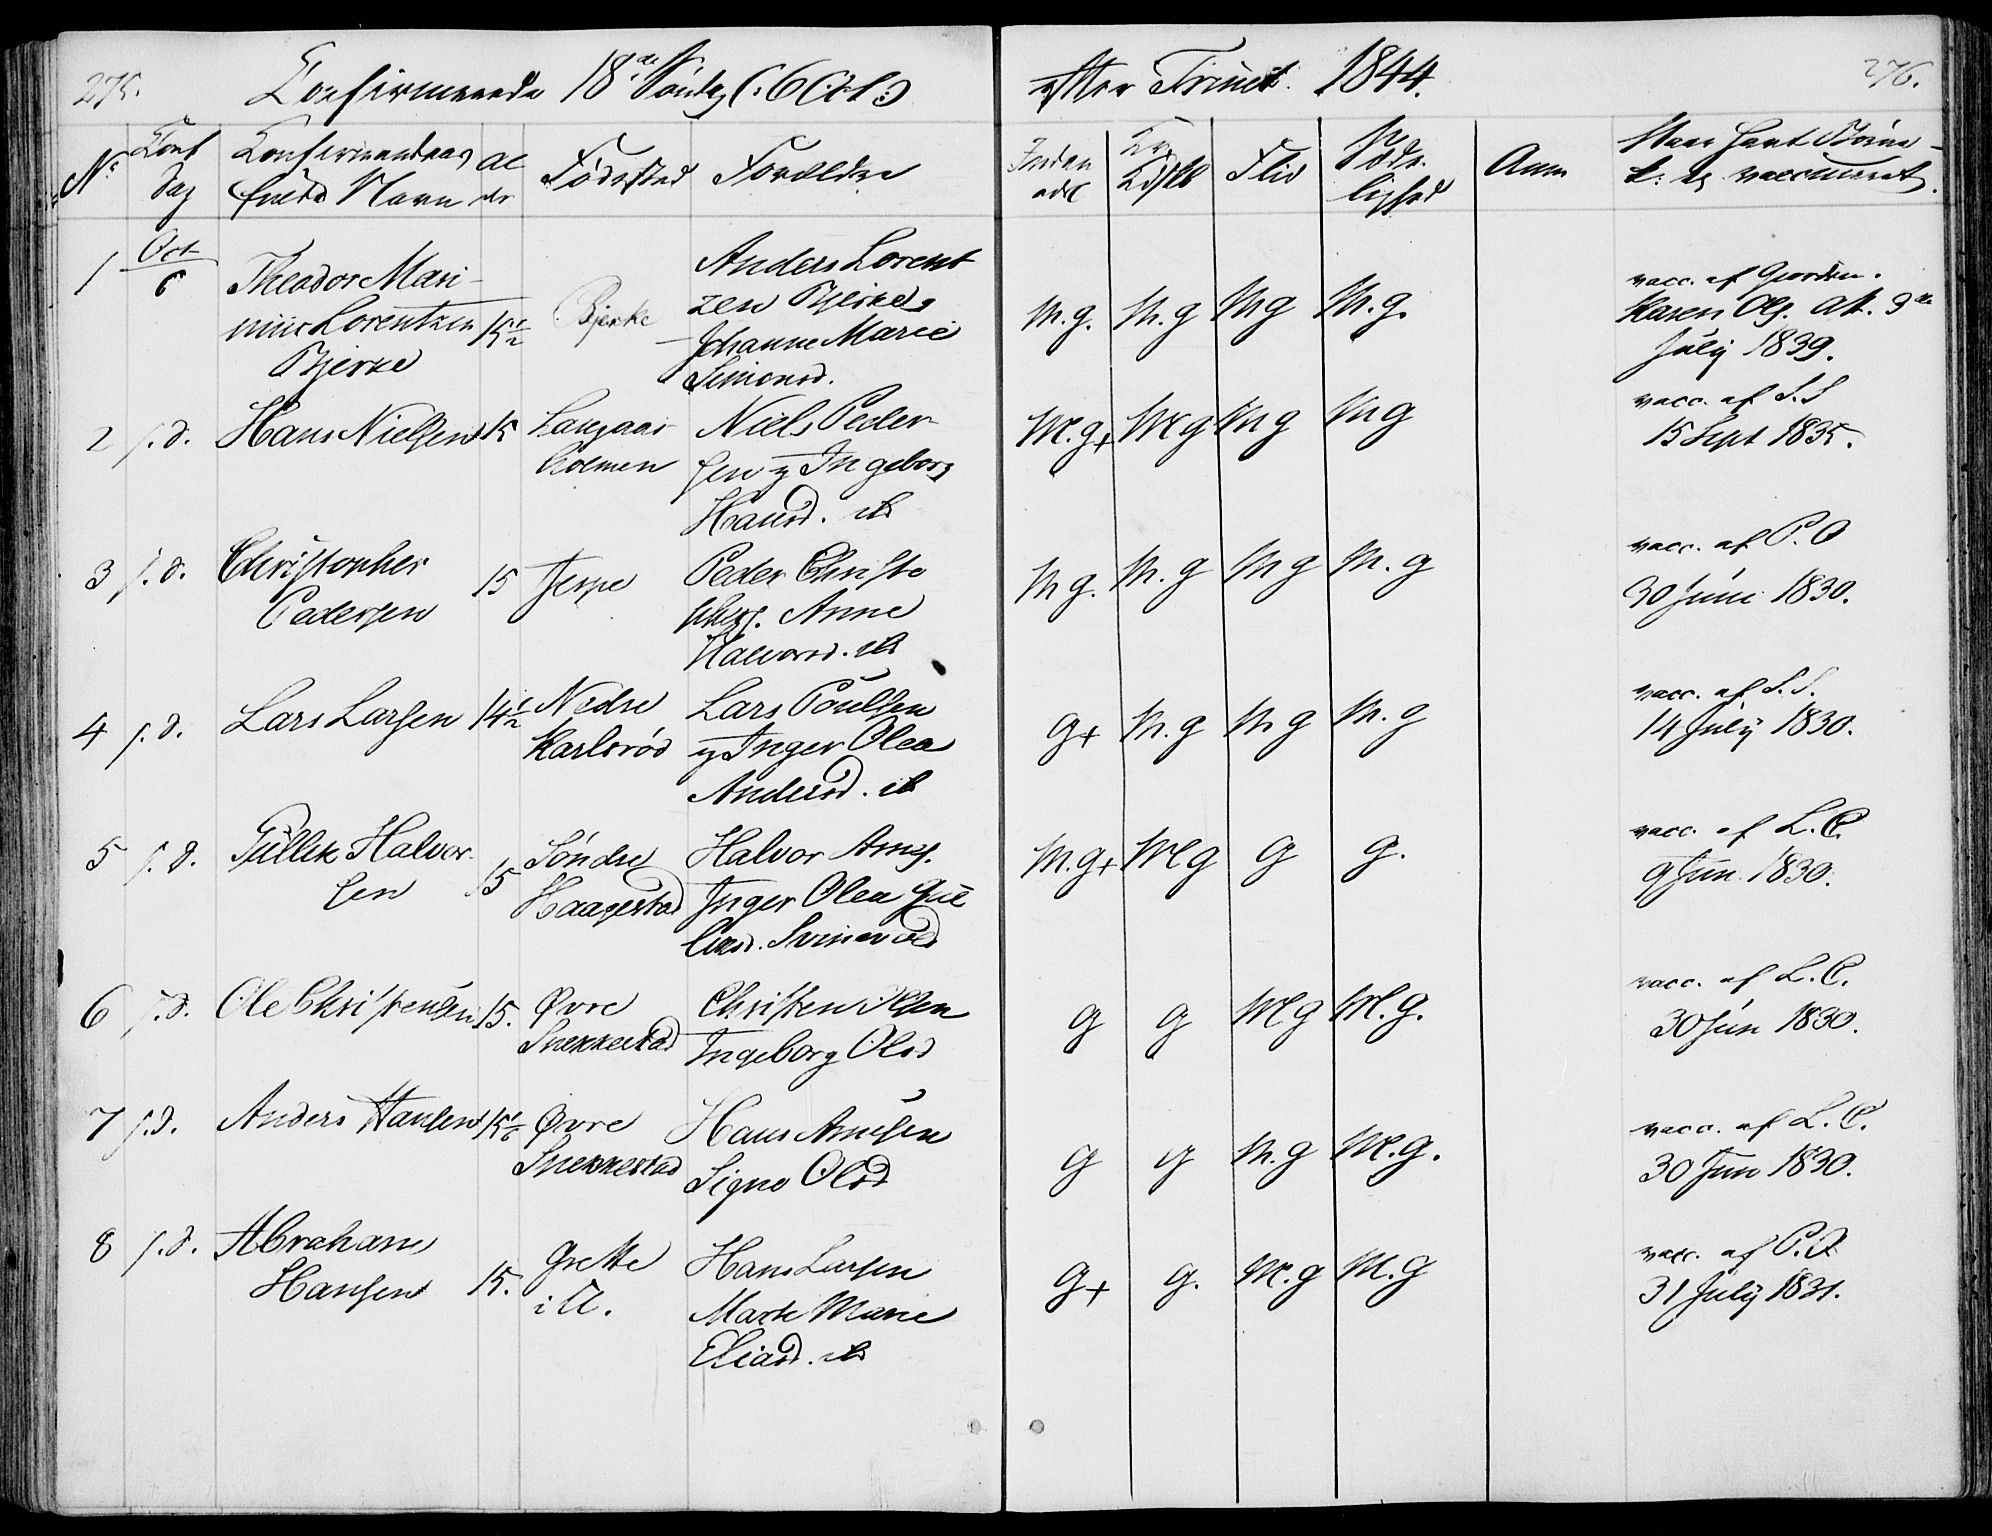 275.
Confirmerede 18de Søndag (: 6 Oct :)
efter Trinit. 1844.
276.
No Conf Dag Confirmandens fulde Navn Al der Fødested Forældre
Inden adl Kundsk Flid Sæde lighed Anm Naar havt Børnek: el vaccineret.
1 Oct 6 Theodor Mari-
nius Lorentzen
Bjerke 15½ Bjerke
Anders Lorent
zen Bjerke
Johanne Marie
Simonsd.
M.g. M.g Mg M.g.
vacc. af Gjordm.
Karen Ols. At. 3de
July 1839.
2 s.d. Hans Nielsen 15 Langaas
holmen
Niels Peder
sen og Ingeborg
Hansd. ib
M.g+ Mg Mg Mg
vacc. af S.S
15 Sept 1835.
3 s.d. Christopher
Pedersen 15 Jerpe
Peder Christo
phers. Anne
Halvorsd. ib
Mg. M.g Mg M.g
vacc. af P.O
30 Juni 1830.
4 s.d. Lars Larsen 14½ Nedre
Karlsrød
Lars Poulsen
og Inger Olea
Andersd. ib
G+ M.g Mg M.g
vacc. af S.S.
14 July 1830.
5 s.d. Gullik Halvor
sen 15 Søndre
Haagestad
Halvor Arnes.
Inger Olea Gul
liksd.
M.g+ Mg G G.
vacc. af L.C.
9 Jun. 1830.
6 s.d. Ole Christensen 15. Øvre
Snekkestad
Christen Olsen
Ingeborg Olsd
G G Mg M.g.
vacc. af L.C.
30 Jun 1830.
7 s.d. Anders Hansen 15⅙ Øvre
Snekkestad
Hans Arnesen
Signe Olsd
G G M.g M.g.
vacc. af L.C.
30 Jun 1830.
8 s.d. Abraham
Hansen 15. Grette
i U.
Hans Larsen
Marte Marie
Eliasd. ib
G+ G. M.g M.g
vacc. af P.O
31 July 1831.